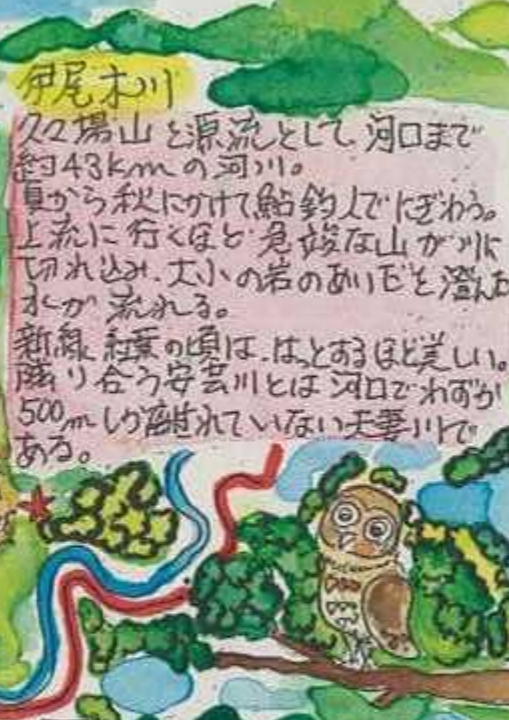 伊尾木川
久々場山を源流として、河口まで
約43kmの河川。
夏から秋にかけて鮎釣人でにぎわう。
上流に行くほど急峻な山が川に
切れ込み、大小の岩のあいだを澄んだ
水が流れる。
新緑、紅葉の頃は、はっとするほど美しい。
隣り合う安芸川とは河口でわずか
500mしか離れていない夫妻川で
ある。